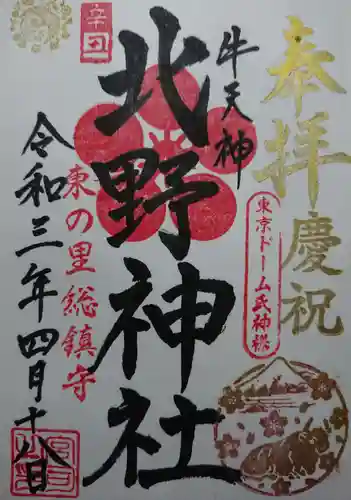 奉拝
慶祝
牛天神
東京ドーム氏神様
北野神社
辛丑
東の里総鎮守
令和三年四月十八日